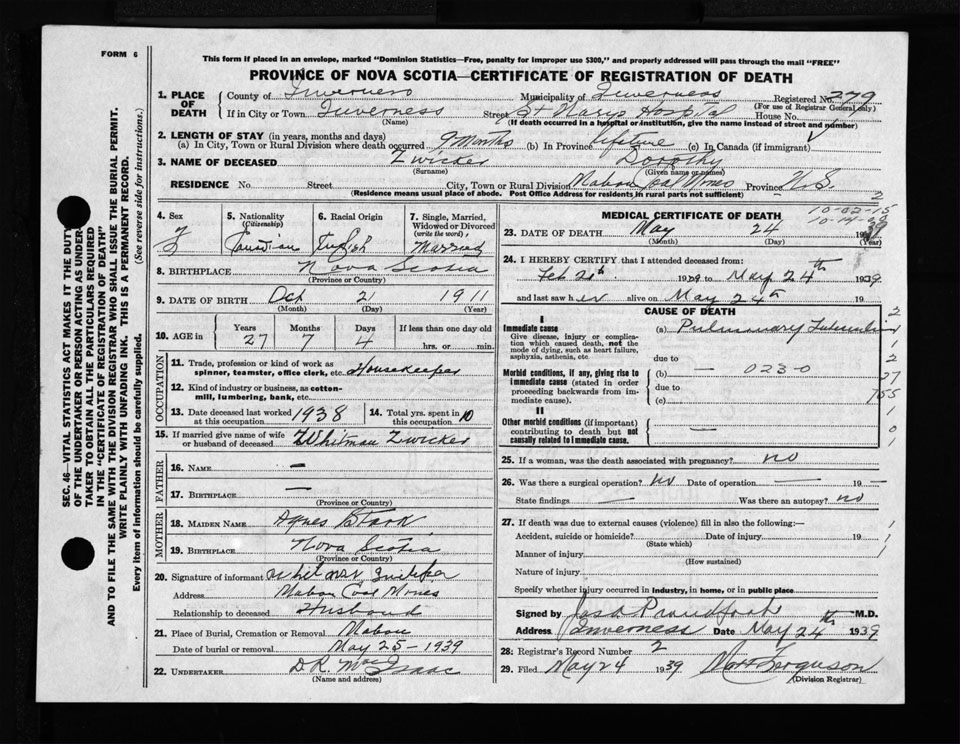 FORM 6
This form if placed in an envelope, marked "Dominion Statistics—Free, penalty for improper use $300," and properly addressed will pass through the mail "FREE"
PROVINCE OF NOVA SCOTIA—CERTIFICATE OF REGISTRATION OF DEATH
1. PLACE OF DEATH
County of Inverness Municipality of Inverness Registered No. 279
(For use of Registrar General only)
If in City or Town Inverness Street St Marys Hospital House No.
(Name) (If death occurred in a hospital or institution, give the name instead of street and number)
2. LENGTH OF STAY (in years, months and days)
(a) In City, Town or Rural Division where death occurred 9 Months (b) In Province lifetime (c) In Canada (if immigrant)
3. NAME OF DECEASED Zwicker Dorothy
(Surname) (Given name or names)
RESIDENCE No. Street City, Town or Rural Division Mabou Coal Mines Province N.S.
(Residence means usual place of abode. Post Office Address for residents in rural parts not sufficient) - 2
4. Sex
F
5. Nationality
(Citizenship)
Canadian
6. Racial Origin
English
7. Single, Married, Widowed or Divorced
(write the word)
Married
8. BIRTHPLACE Nova Scotia
(Province or Country)
9. DATE OF BIRTH Oct 21 1911
(Month) (Day) (Year)
10. AGE in Years Months Days If less than one day old
27 7 4 hrs. or min.
OCCUPATION
11. Trade, profession or kind of work as spinner, teamster, office clerk, etc. Housekeeper
12. Kind of industry or business, as cotton-mill, lumbering, bank, etc.
13. Date deceased last worked at this occupation 1938
14. Total yrs. spent in 10
15. If married give name of wife or husband of deceased Whitman Zwicker
FATHER
16. NAME —
17. BIRTHPLACE —
(Province or Country)
MOTHER
18. MAIDEN NAME Agnes
19. BIRTHPLACE Nova Scotia
(Province or Country)
20. Signature of informant Whitman Zwicker
Address Mabou Coal Mines
Relationship to deceased Husband
21. Place of Burial, Cremation or Removal Mabou
Date of burial or removal May 25 - 1939
22. UNDERTAKER D.R. MacIsaac
(Name and address)
MEDICAL CERTIFICATE OF DEATH
10-02-15
23. DATE OF DEATH May 24 1939
(Month) (Day) (Year)
24. I HEREBY CERTIFY that I attended deceased from:
Feb 1939 to May 24th 1939
and last saw her alive on May 24th 19
CAUSE OF DEATH
I
Immediate cause
Give disease, injury or complication which caused death, not the mode of dying, such as heart failure, asphyxia, asthenia, etc.
(a) Pulmonary
due to
Morbid conditions, if any, giving rise to immediate cause (stated in order proceeding backwards from immediate cause).
(b) — 023-0
due to
(c)
II
Other morbid conditions (if important) contributing to death but not causally related to immediate cause. —
2
1
2
27
755
1
0
1
25. If a woman, was the death associated with pregnancy? no
26. Was there a surgical operation? No Date of operation — 19 —
State findings — Was there an autopsy? no
27. If death was due to external causes (violence) fill in also the following:—
Accident, suicide or homicide? Date of injury 19
(State which)
Manner of injury
(How sustained)
Nature of injury
Specify whether injury occurred in industry, in home, or in public place
Signed by M.D.
Address Inverness Date May 24th 1939
28. Registrar's Record Number 2
29. Filed May 24 1939 Ferguson
(Division Registrar)
SEC. 46—VITAL STATISTICS ACT MAKES IT THE DUTY
OF THE UNDERTAKER OR PERSON ACTING AS UNDER-
TAKER TO OBTAIN ALL THE PARTICULARS REQUIRED
IN THE "CERTIFICATE OF REGISTRATION OF DEATH"
AND TO FILE THE SAME WITH THE DIVISION REGISTRAR WHO SHALL ISSUE THE BURIAL PERMIT.
WRITE PLAINLY WITH UNFADING INK. THIS IS A PERMANENT RECORD.
Every item of information should be carefully supplied. (See reverse side for instructions.)